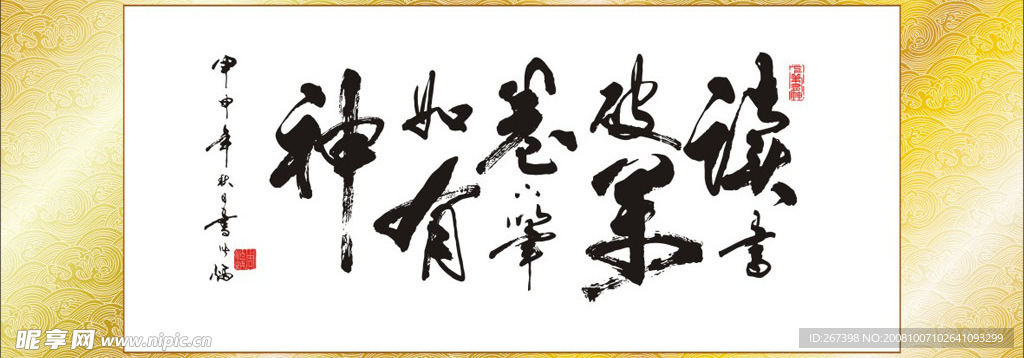 讀書
破萬
卷下筆
如有
神
甲申年秋月書
昵享网 www.nipic.cn
ID:267398 NO:20081007102641093299